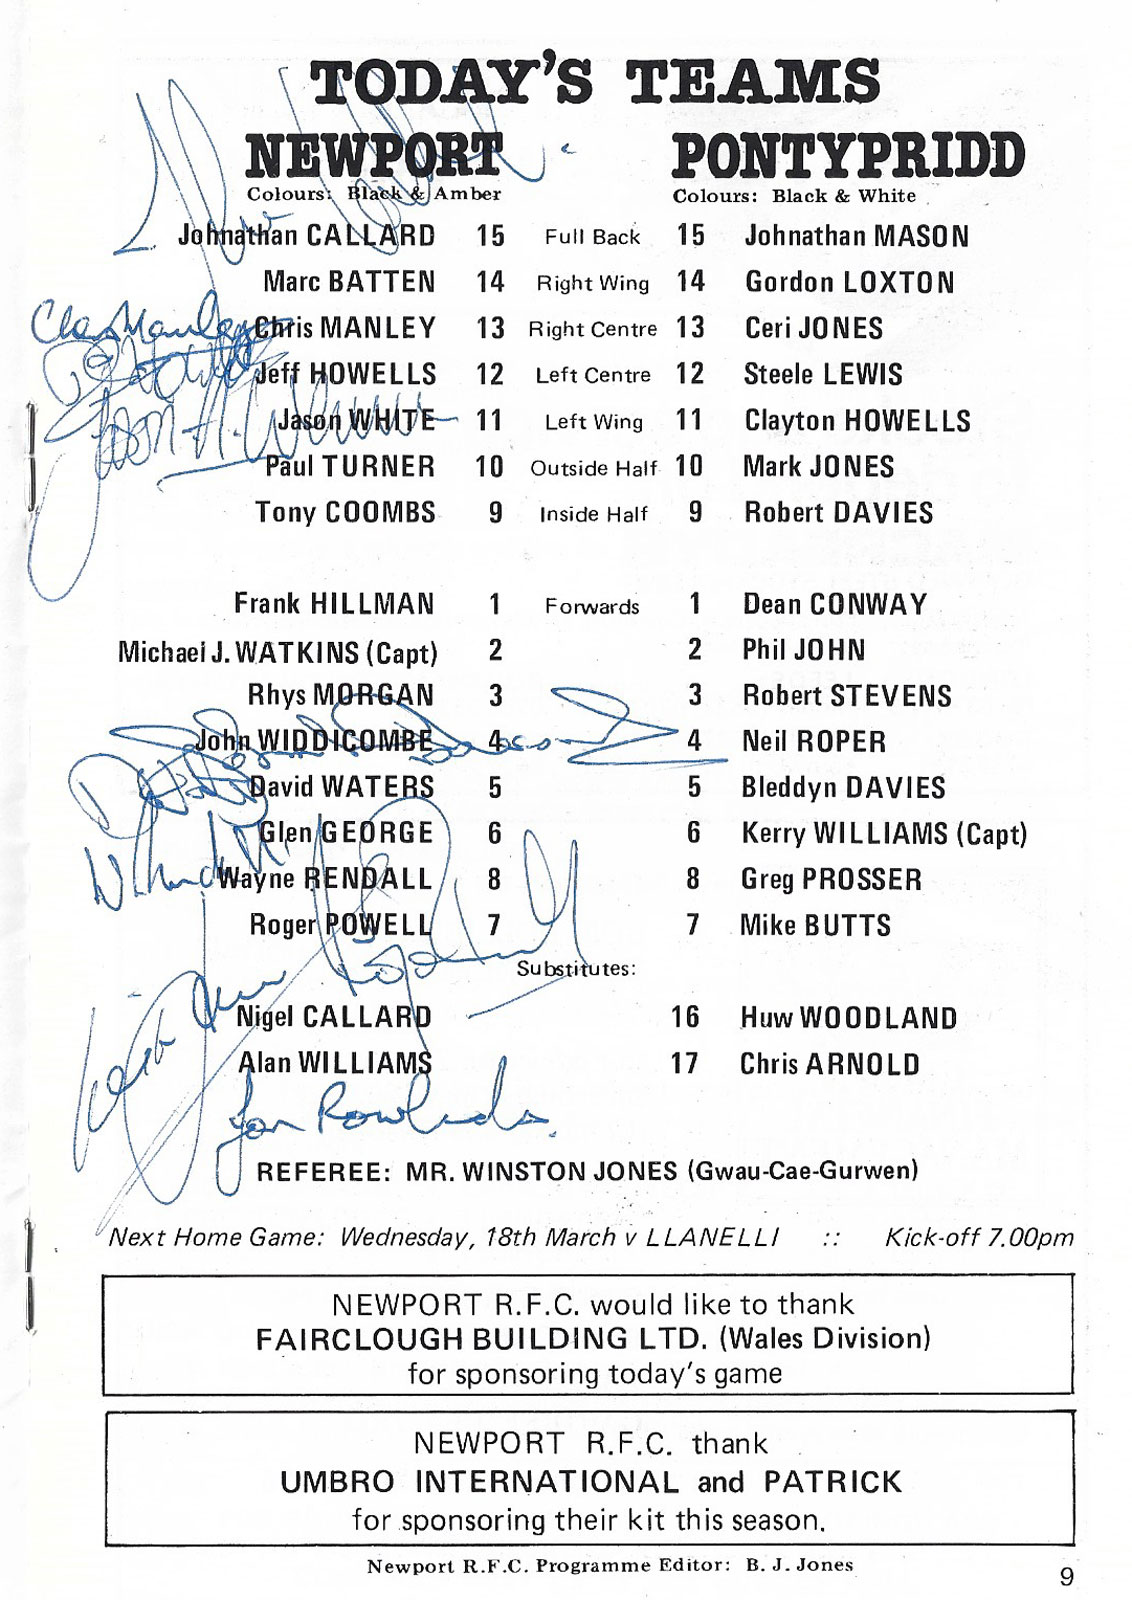 TODAY'S TEAMS
NEWPORT PONTYPRIDD
Colours: Black & Amber Colours: Black & White
Johnathan CALLARD 15 Full Back 15 Johnathan MASON
Marc BATTEN 14 Right Wing 14 Gordon LOXTON
Chris Manley
Chris MANLEY 13 Right Centre 13 Ceri JONES
Jeff HOWELLS 12 Left Centre 12 Steele LEWIS
Jason White
Jason WHITE 11 Left Wing 11 Clayton HOWELLS
Paul TURNER 10 Outside Half 10 Mark JONES
Tony COOMBS 9 Inside Half 9 Robert DAVIES
Frank HILLMAN 1 Forwards 1 Dean CONWAY
Michael J. WATKINS (Capt) 2 2 Phil JOHN
Rhys MORGAN 3 3 Robert STEVENS
John WIDDICOMBE 4 4 Neil ROPER
David WATERS 5 5 Bleddyn DAVIES
Glen GEORGE 6 6 Kerry WILLIAMS (Capt)
Wayne RENDALL 8 8 Greg PROSSER
Roger POWELL 7 7 Mike BUTTS
Substitutes:
Nigel CALLARD 16 Huw WOODLAND
Alan WILLIAMS 17 Chris ARNOLD
Jon Rowlands
REFEREE: MR. WINSTON JONES (Gwau-Cae-Gurwen)
Next Home Game: Wednesday, 18th March v LLANELLI :: Kick-off 7.00pm
NEWPORT R.F.C. would like to thank
FAIRCLOUGH BUILDING LTD. (Wales Division)
for sponsoring today's game
NEWPORT R.F.C. thank
UMBRO INTERNATIONAL and PATRICK
for sponsoring their kit this season.
Newport R.F.C. Programme Editor: B. J. Jones
9